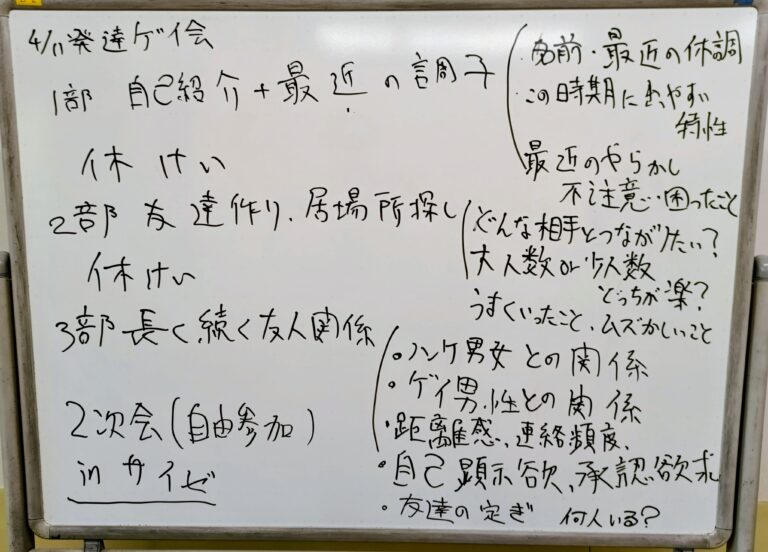 4/11 発達ゲイ会
1部 自己紹介+最近の調子
名前・最近の体調
・この時期に出やすい
特性
最近のやらかし
不注意・困ったこと
休けい
2部 友達作り、居場所探し
どんな相手とつながりたい?
大人数or少人数
どっちが楽?
うまくいったこと、ムズかしいこと
休けい
3部 長く続く友人関係
・ノンケ男女との関係
・ゲイ男性との関係
・距離感、連絡頻度、
・自己顕示欲、承認欲求
・友達の定ぎ 何人いる?
2次会(自由参加)
in サイゼ